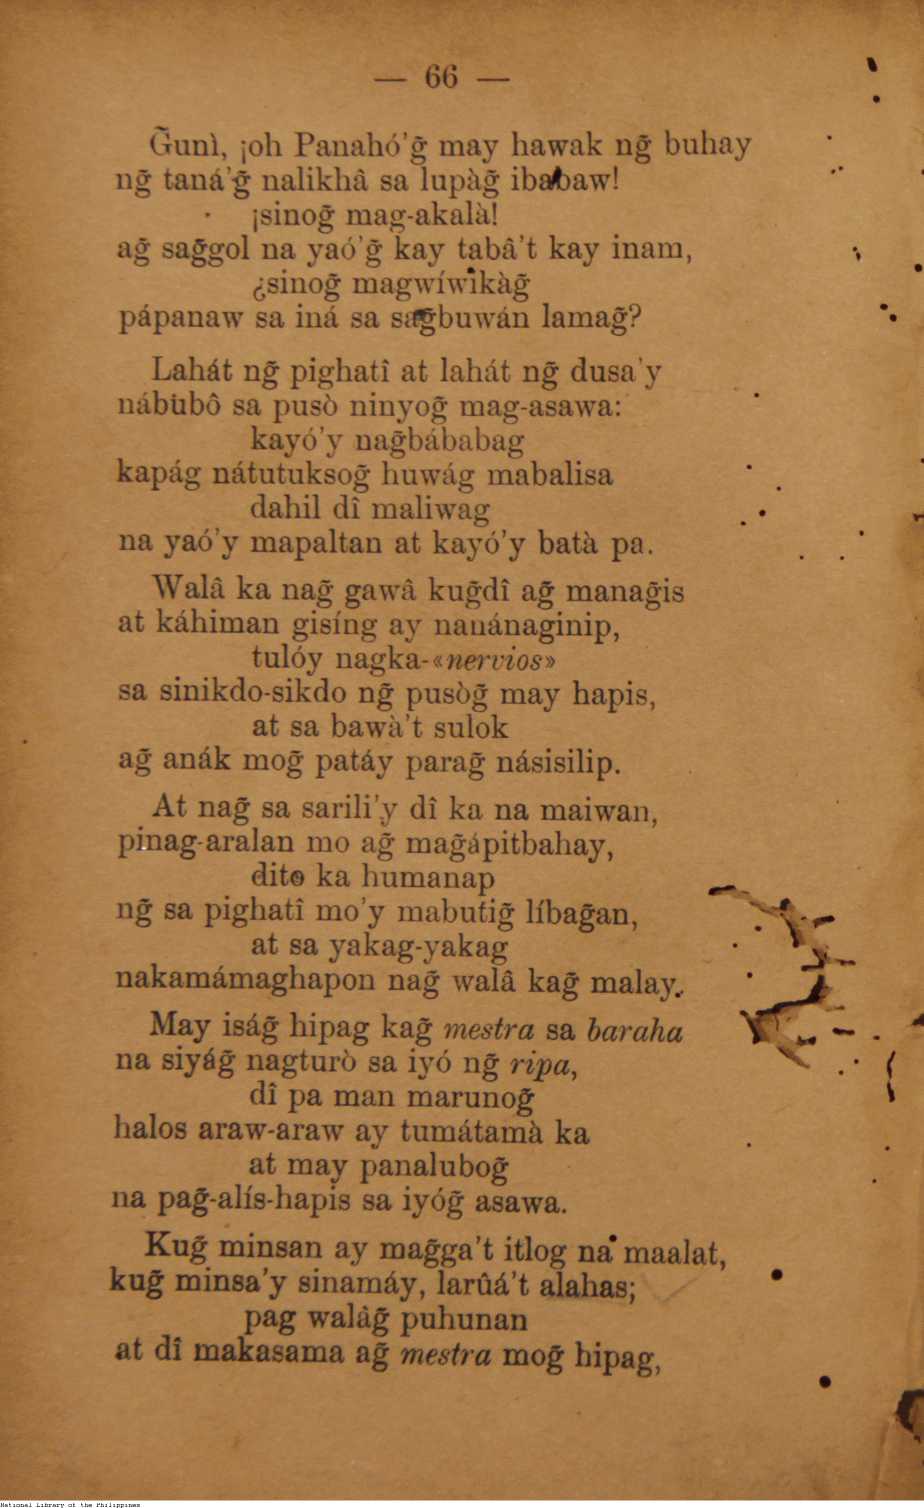 — 66 —
G̃unì, ¡oh Panahó’g̃ may hawak ng̃ buhay
ng̃ taná’g̃ nalikhâ sa lupàg̃ ibabaw!
¡sinog̃ mag-akalà!
ag̃ sag̃gol na yaó’g̃ kay tabâ’t kay inam,
¿sinog̃ magwíwikàg̃
pápanaw sa iná sa sag̃buwán lamag̃?
Lahát ng̃ pighatî at lahát ng̃ dusa’y
nábubô sa pusò ninyog̃ mag-asawa:
kayó’y nag̃bábabag
kapág nátutuksog̃ huwág mabalisa
dahil dî maliwag
na yaó’y mapaltan at kayó’y batà pa.
Walâ ka nag̃ gawâ kug̃dî ag̃ manag̃is
at káhiman gisíng ay nanánaginip,
tulóy nagka-«nervios»
sa sinikdo-sikdo ng̃ pusòg̃ may hapis,
at sa bawà’t sulok
ag̃ anák mog̃ patáy parag̃ násisilip.
At nag̃ sa sarili’y dî ka na maiwan,
pinag-aralan mo ag̃ mag̃ápitbahay,
dito ka humanap
ng̃ sa pighatî mo’y mabutig̃ líbag̃an,
at sa yakag-yakag
nakamámaghapon nag̃ walâ kag̃ malay.
May iság̃ hipag kag̃ mestra sa baraha
na siyág̃ nagturò sa iyó ng̃ ripa,
dî pa man marunog̃
halos araw-araw ay tumátamà ka
at may panalubog̃
na pag̃-alís-hapis sa iyóg̃ asawa.
Kug̃ minsan ay mag̃ga’t itlog na maalat,
kug̃ minsa’y sinamáy, larûá’t alahas;
pag walâg̃ puhunan
at dî makasama ag̃ mestra mog̃ hipag,
National Library of the Philippines